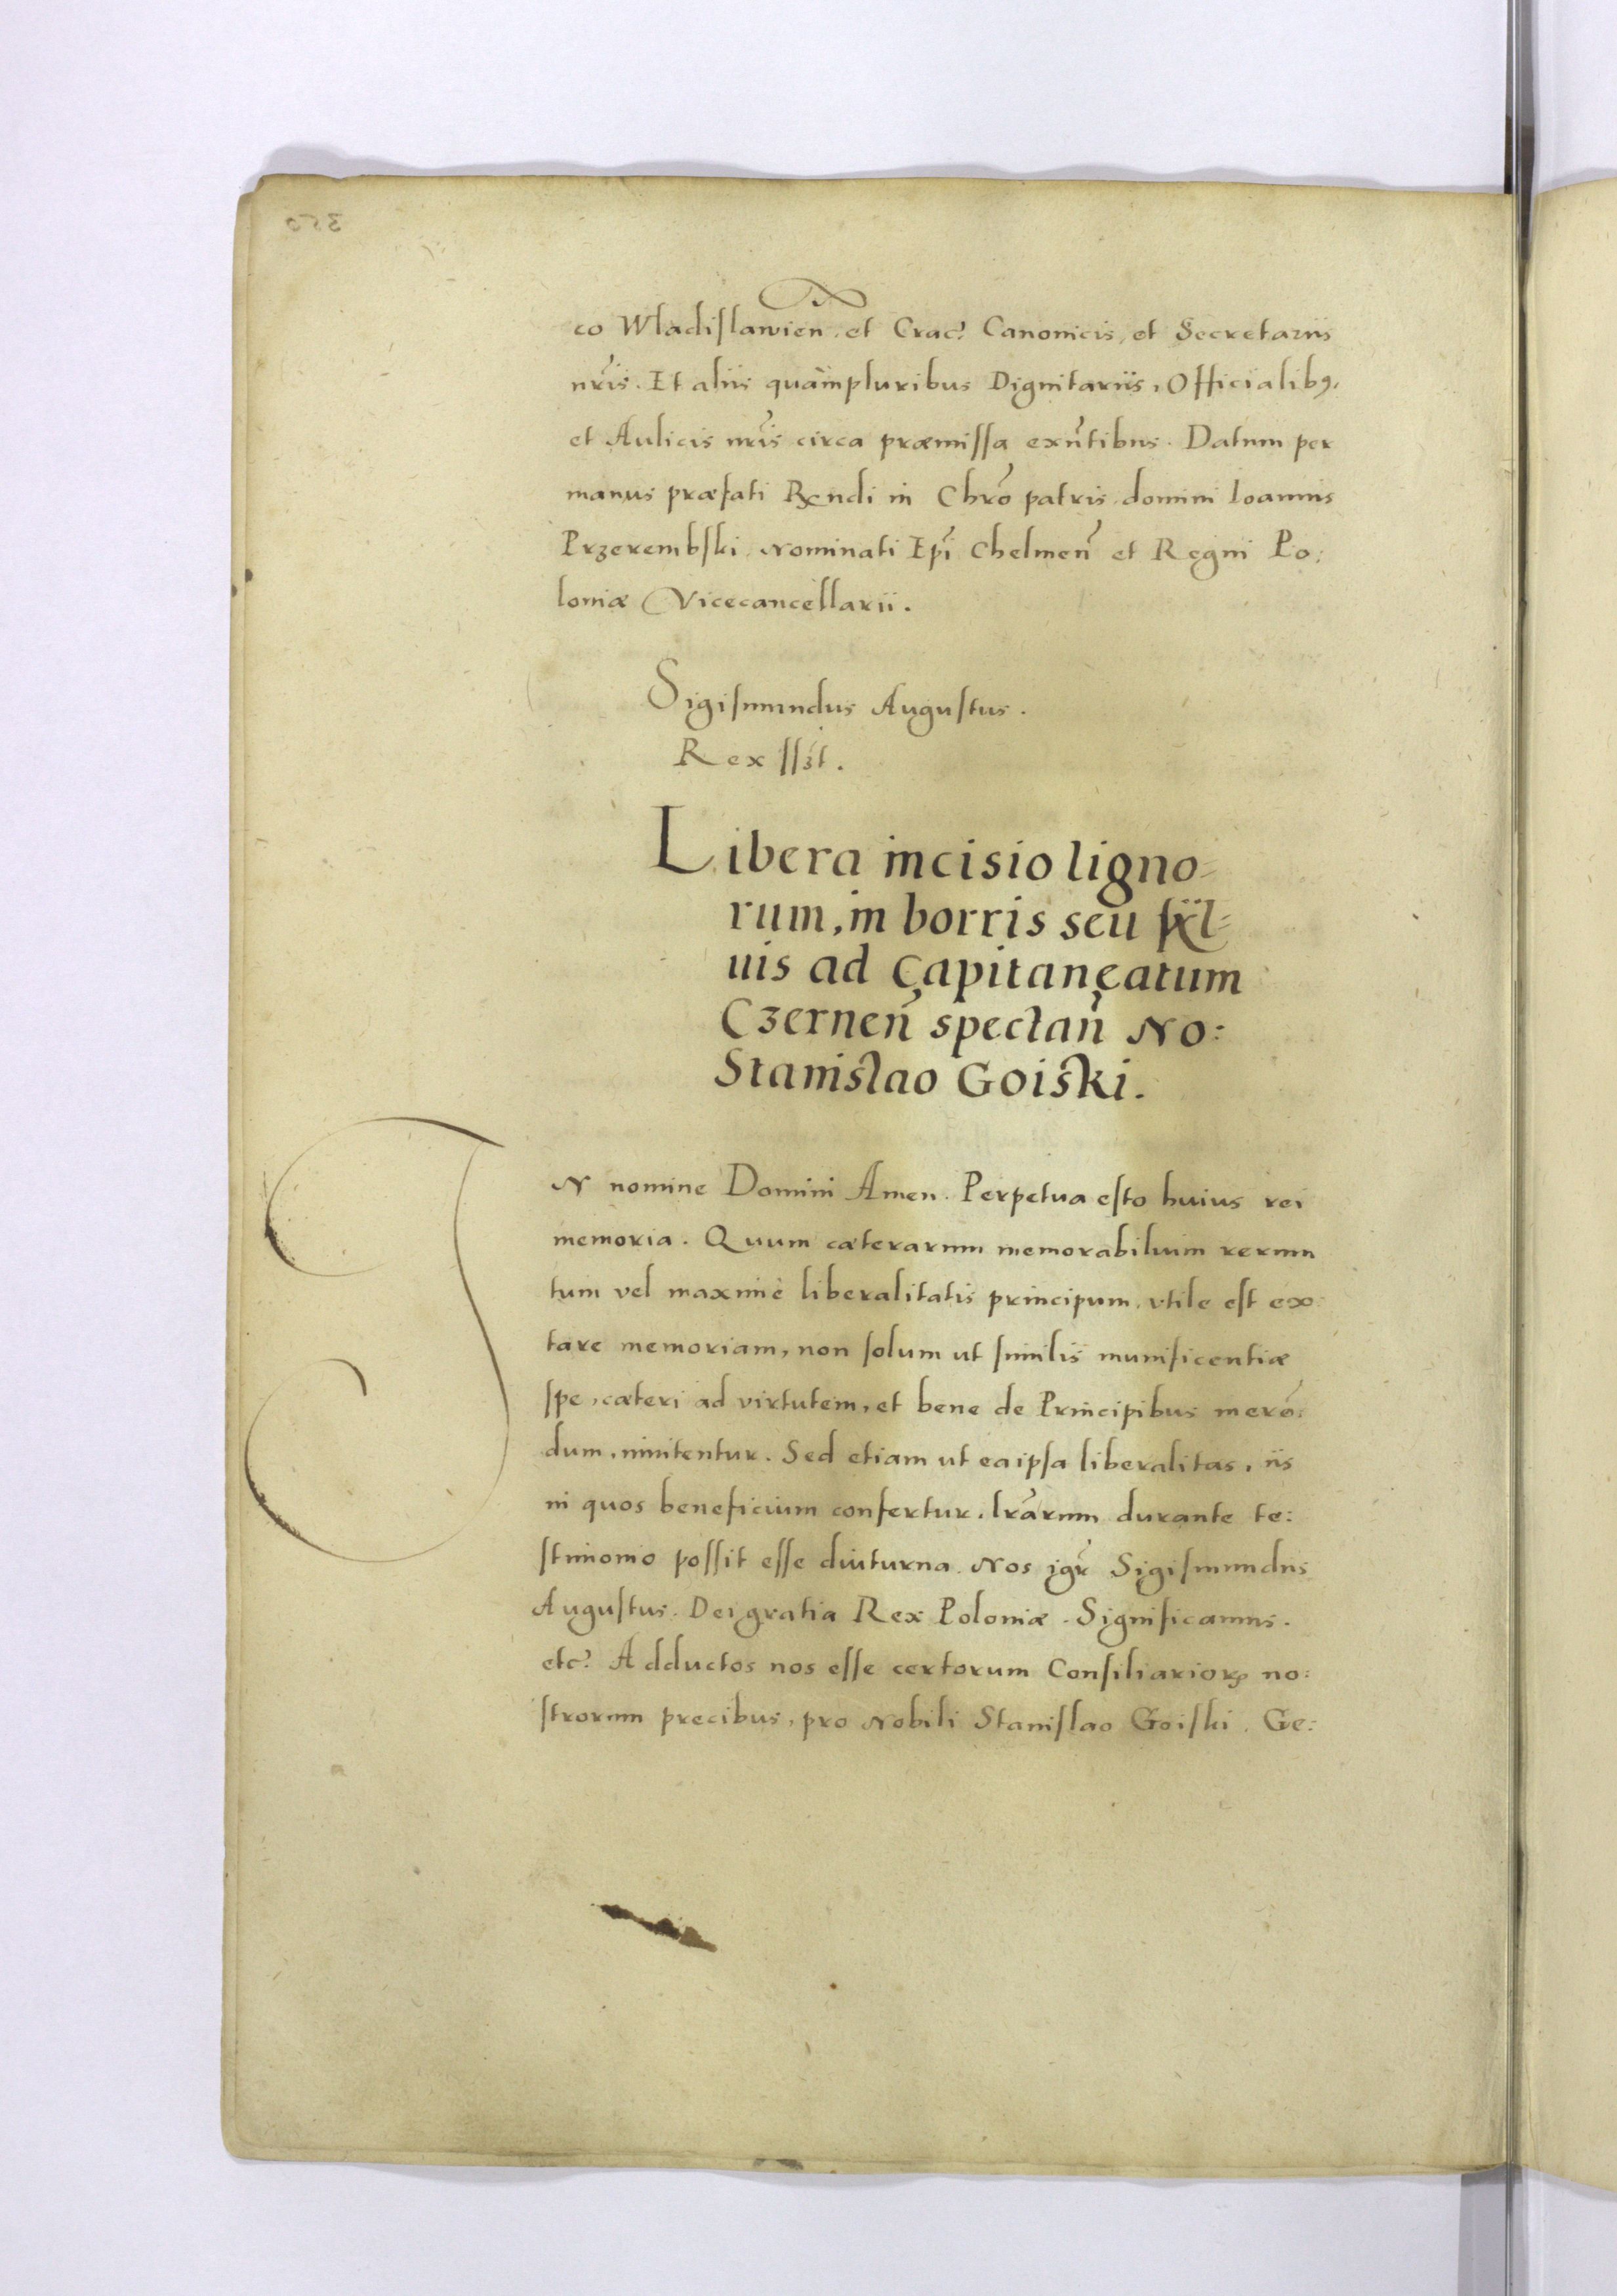 co Wladislawien̄. et Crac̓. Canonicis, et Secretariis
nr̃is. Et aliis quàmpluribus Dignitariis, Officialibꝰ,
et Aulicis nr̃is circa præmissa exñtibus. Datum per
manus præfati Rendi in Chrõ patris domini Ioannis
Przerembski Nominati Epĩ Chelmen̄ et Regni Po:
loniæ Vicecancellarii.
Sigismundus Augustus.
Rex ssꝫt.
Libera incisio ligno=
rum, in borris seu syl=
uis ad Capitaneatum
Czernen̄ spectan̄ No:
Stanislao Goiski.
IN nomine Domini Amen. Perpetua esto huius rei
memoria. Quum cæterarum memorabilium rerum
tum vel maximè liberalitatis principum, vtile est ex:
tare memoriam, non solum ut similis munificentiæ
spe, cæteri ad virtutem, et bene de Principibus merẽ:
dum, innitentur. Sed etiam ut ea ipsa liberalitas, iis
in quos beneficium confertur, lr̃arum durante te:
stimonio possit esse diuturna. Nos igr̃ Sigismundus
Augustus. Dei gratia Rex Poloniæ. Significamus.
etc̓. Adductos nos esse certorum Consiliarioꝝ no:
strorum precibus, pro Nobili Stanislao Goiski, Ge: